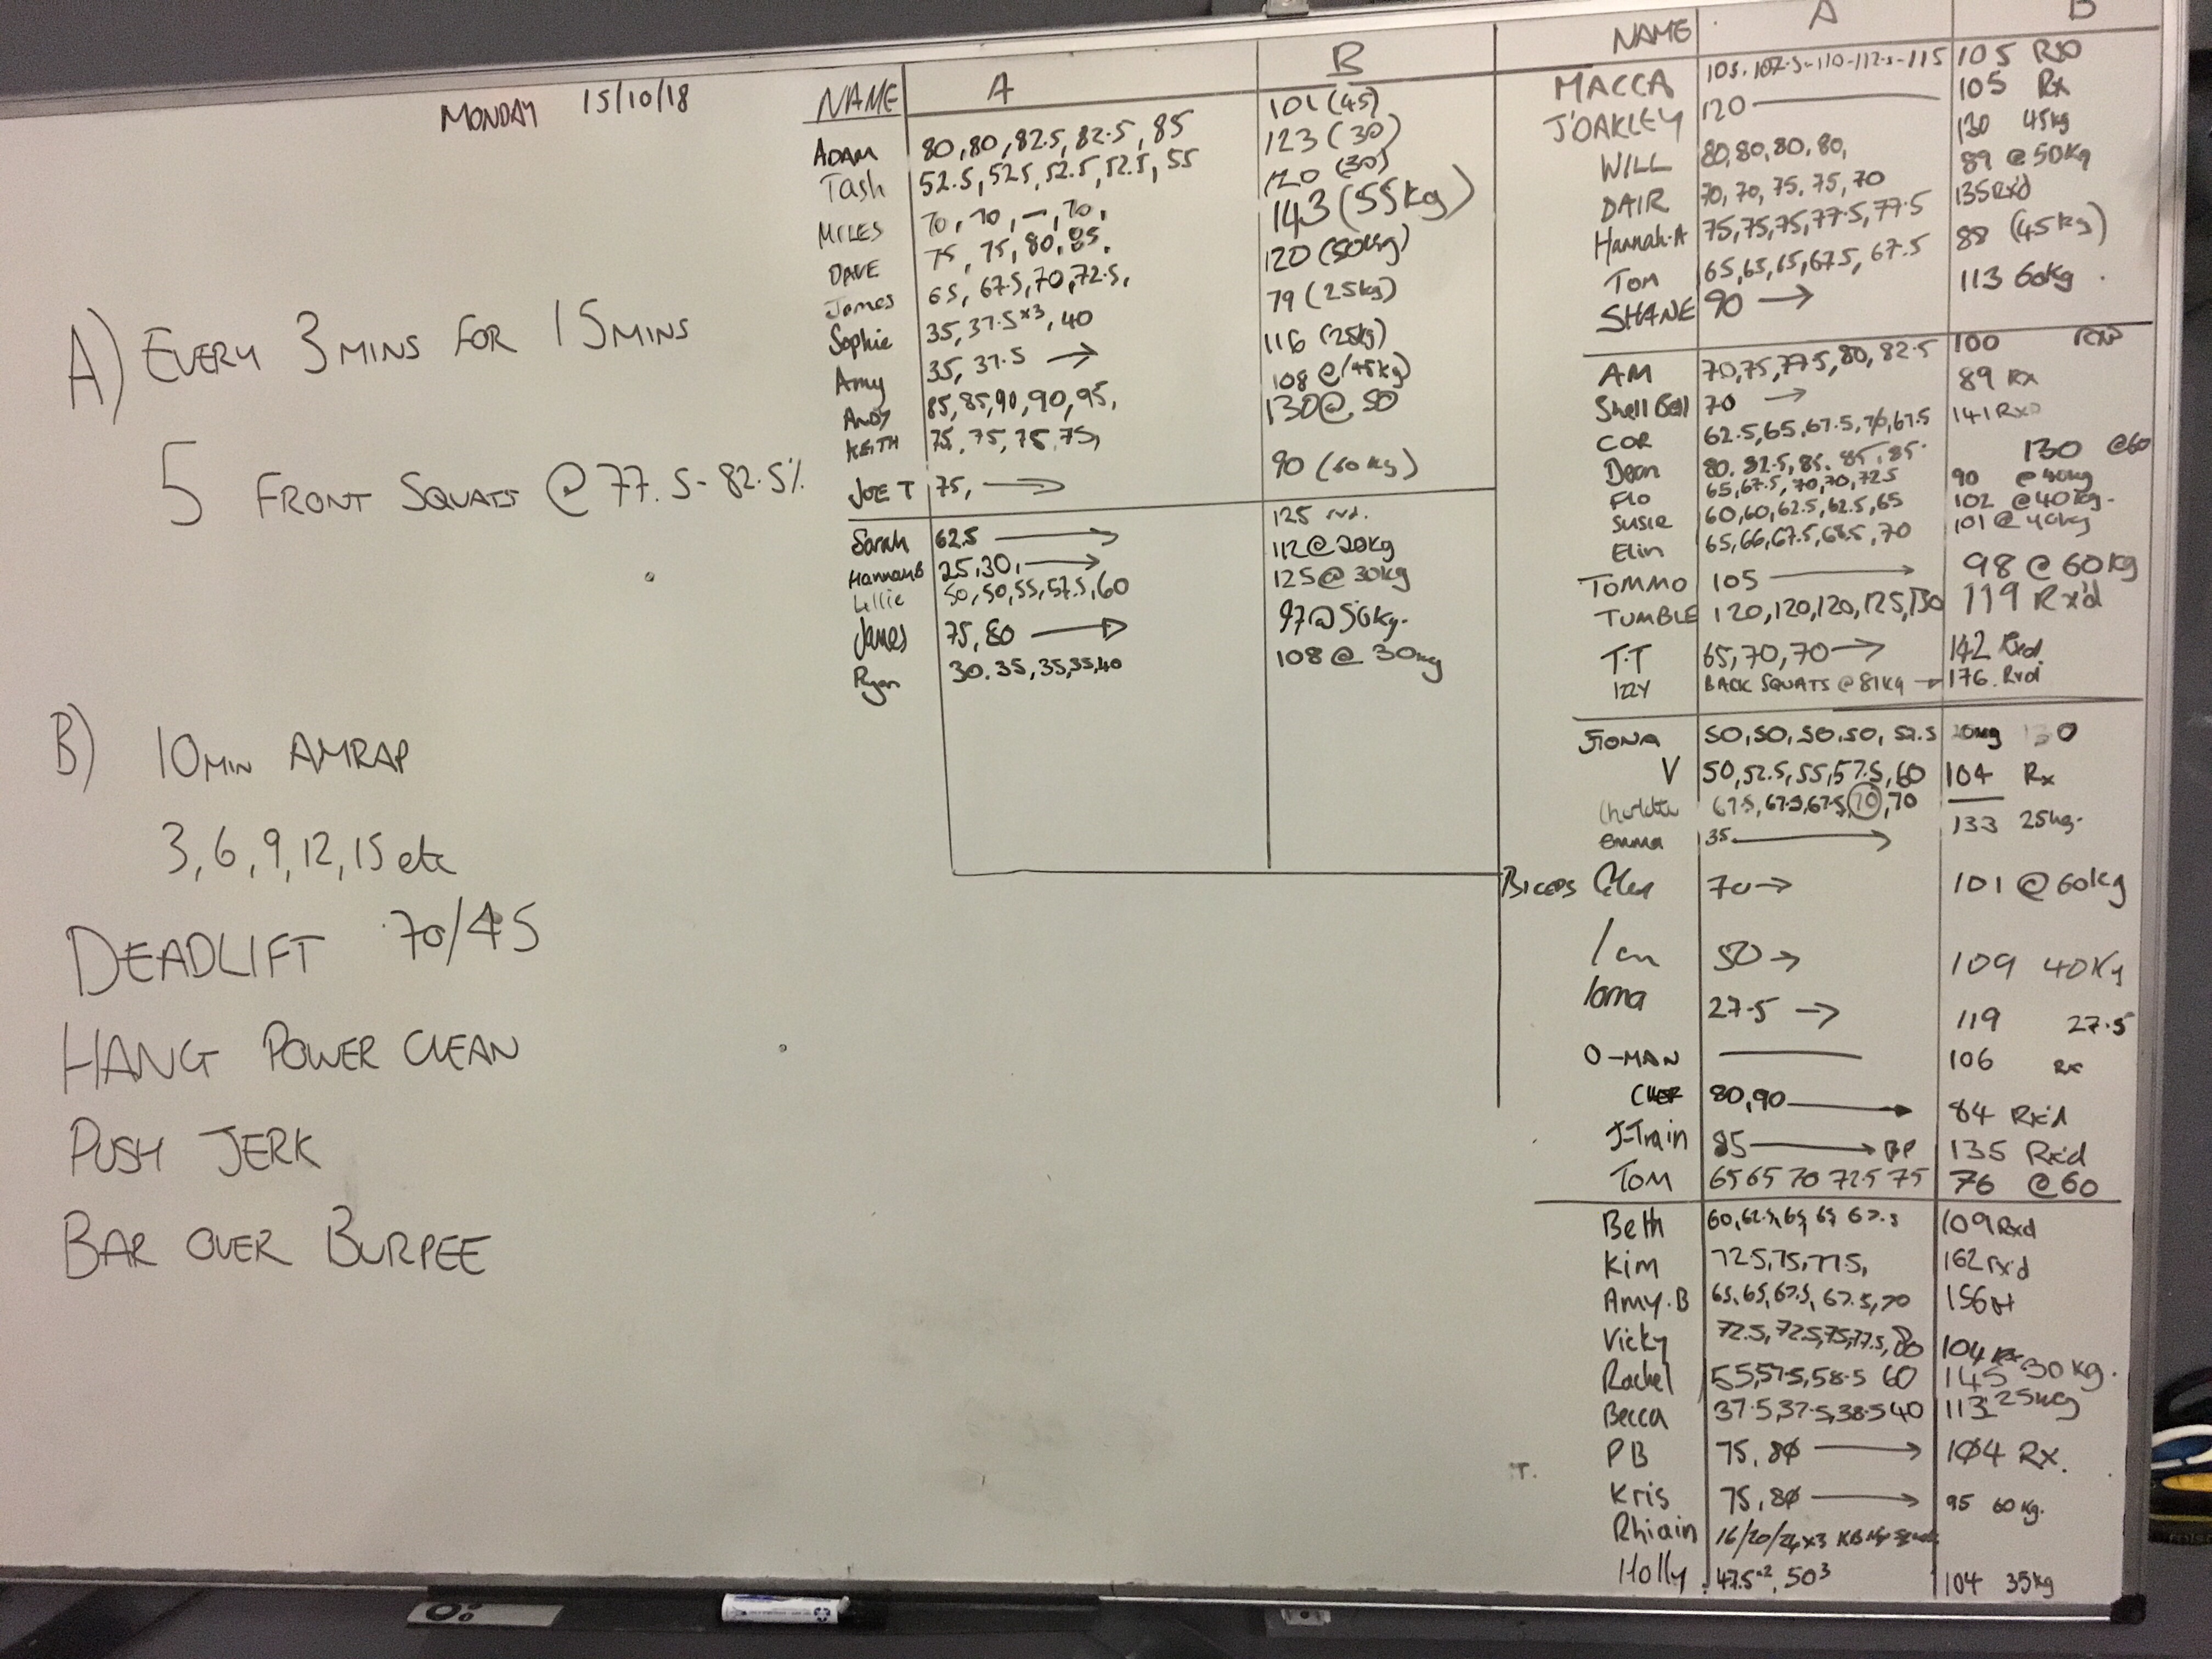 MONDAY 15/10/18
A) EVERY 3 MINS FOR 15 MINS
5 FRONT SQUATS @ 77.5-82.5%
B) 10 MIN AMRAP
3, 6, 9, 12, 15 etc
DEADLIFT 70/45
HANG POWER CLEAN
PUSH JERK
BAR OVER BURPEE
NAME A B
ADAM 80, 80, 82.5, 82.5, 85 101 (45)
Tash 52.5, 52.5, 52.5, 52.5, 55 123 (30)
MILES 70, 70, —, 70, 120 (30)
DAVE 75, 75, 80, 85. 143 (55kg)
James 65, 67.5, 70, 72.5, 120 (50kg)
Sophie 35, 37.5 x3, 40 79 (25kg)
Amy 35, 37.5 → 116 (25kg)
Andy 85, 85, 90, 90, 95, 108 @ (45kg)
KEITH 75, 75, 75, 75, 130 @ 50
JOE T 75, → 90 (60kg)
Sarah 62.5 → 125 rxd.
Hannah B 25, 30, → 112 @ 20kg
Lellie 50, 50, 55, 57.5, 60 125 @ 30kg
James 75, 80 → 97 @ 50kg.
Ryan 30. 35, 35, 35, 40 108 @ 30kg
NAME A B
MACCA 105. 107.5-110-112.5-115 105 RXD
J'OAKLEY 120 — 105 Rx
WILL 80, 80, 80, 80, 130 45kg
DAIR 70, 70, 75, 75, 70 89 @ 50kg
Hannah.A 75, 75, 75, 77.5, 77.5 135 Rx'd
Tom 65, 65, 65, 67.5, 67.5 88 (45kg)
SHANE 90 → 113 60kg.
AM 70, 75, 77.5, 80, 82.5 100 RXD
Shell Bell 70 → 89 Rx
COR 62.5, 65, 67.5, 70, 67.5 141 RXD
Dean 80. 82.5, 85. 85, 85. 130 @60
Flo 65, 67.5, 70, 70, 72.5 90 @ 40kg
Susie 60, 60, 62.5, 62.5, 65 102 @ 40kg.
Elin 65, 66, 67.5, 68.5, 70 101 @ 40kg
TOMMO 105 → 98 @ 60kg
TUMBLE 120, 120, 120, 125, 130 119 Rx'd
T.T 65, 70, 70 → 142 Rxd
IZZY BACK SQUATS @ 81KG → 176. Rxd
FIONA 50, 50, 50. 50, 52.5 20kg 130
V 50, 52.5, 55, 57.5, 60 104 Rx
67.5, 67.5, 67.5, 70, 70 —
emma 35 → 133 25kg.
BICEPS 70 → 101 @ 60kg
Ian 50 → 109 40Kg
lorna 27.5 → 119 27.5
O-MAN — 106 Rx
80, 90 → 84 Rx'd
J-Train 85 → BP 135 Rx'd
TOM 65 65 70 72.5 75 76 @60
Beth 60, 62.5, 65, 65 67.5 109 Rxd
Kim 72.5, 75, 77.5, 162 rx'd
Amy.B 65, 65, 67.5, 67.5, 70 156
Vicky 72.5, 72.5, 75, 77.5, 80 104 Rx
Rachel 55, 57.5, 58.5 60 145 30 kg.
Becca 37.5, 37.5, 38.5 40 113 25kg
PB 75, 80 → 104 RX.
Kris 75, 80 → 95 60 kg.
Rhiain 16/20/24x3 KB
Holly 47.5 x2, 50 3 104 35kg